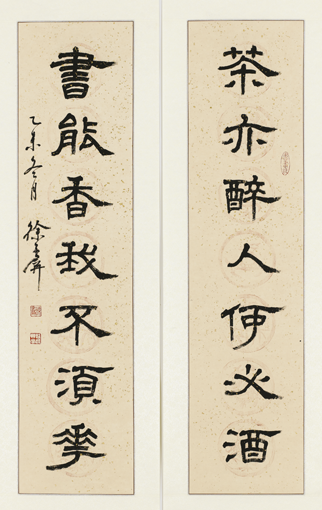 茶亦醉人何必酒
書能香我不須花
乙未冬月